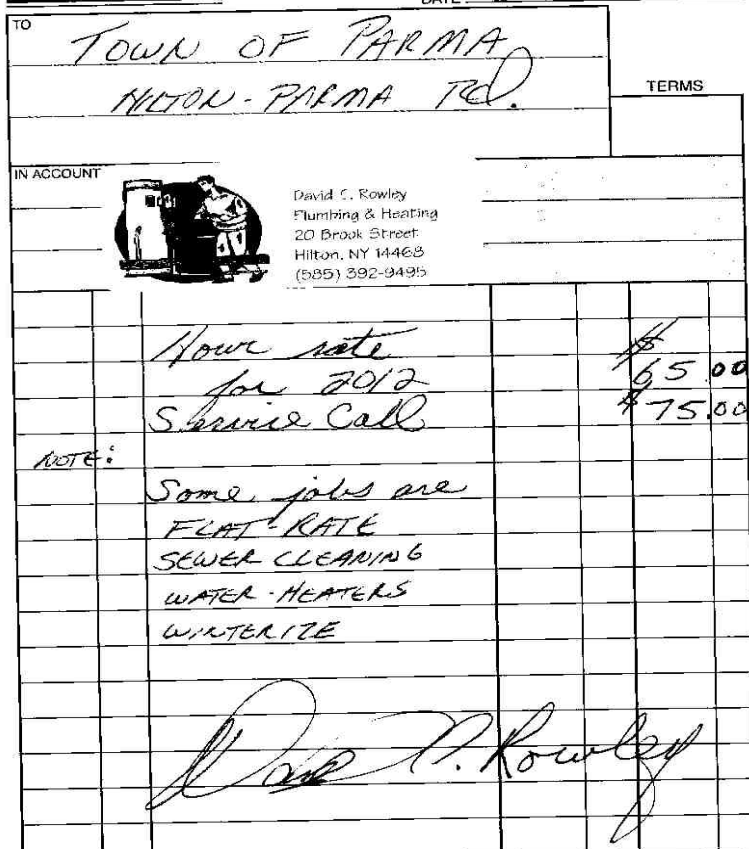 DATE
TO
TOWN OF PARMA
HILTON-PARMA Rd.
TERMS
IN ACCOUNT
David C. Rowley
Plumbing & Heating
20 Brook Street
Hilton, NY 14468
(585) 392-9495
Hour rate $
for 2012 65.00
Service Call $75.00
NOTE:
Some jobs are
FLAT-RATE
SEWER CLEANING
WATER-HEATERS
WINTERIZE
Rowley